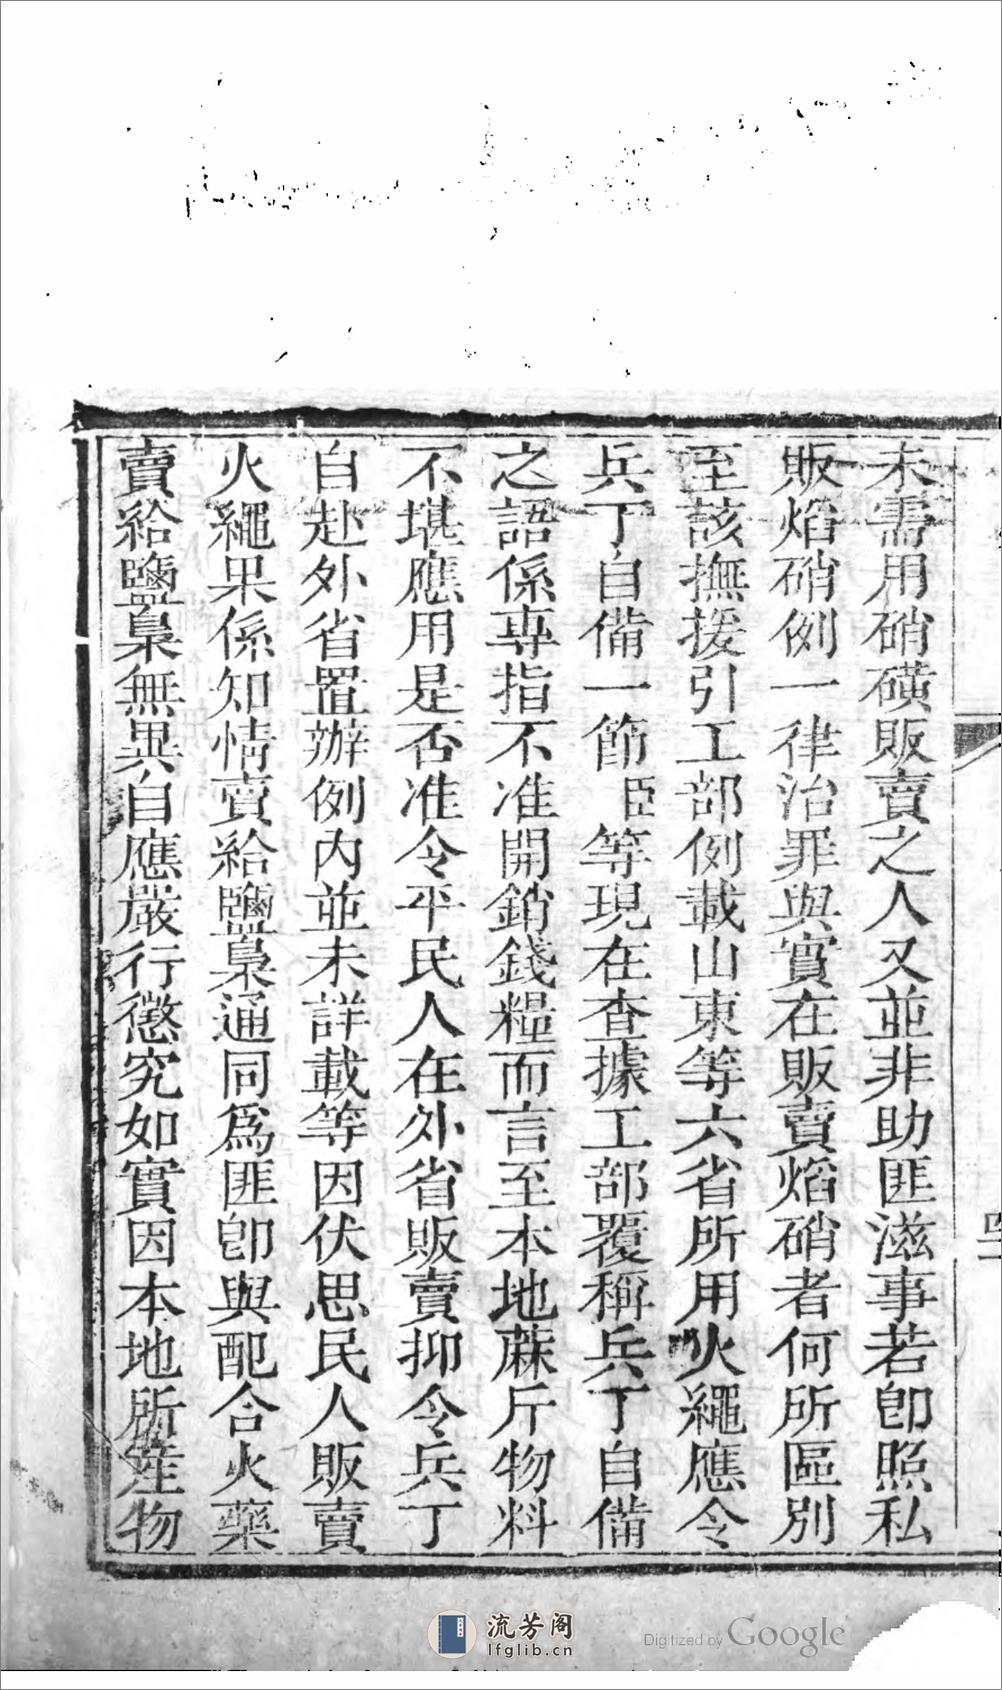 未需用硝磺販賣之人又並非助匪滋事若卽照私
販焰硝例一律治罪與實在販賣焰硝者何所區別
至該撫援引工部例載山東等六省所用火繩應令
兵丁自備一節臣等現在查據工部覆稱兵丁自備
之語係專指不准開銷錢糧而言至本地蔴斤物料
不堪應用是否准令平民人在外省販賣抑令兵丁
自赴外省置辦例內並未詳載等因伏思民人販賣
火繩果係知情賣給鹽梟通同爲匪卽與配合火藥
賣給鹽梟無異自應嚴行懲究如實因本地所產物
流芳阁
lfglib.cn
Digitized by Google